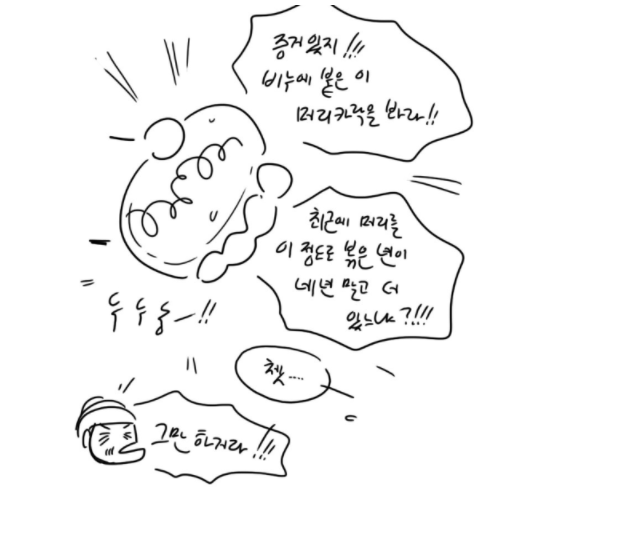 증거 있지!!!
비누에 붙은 이
머리카락을 봐라!!
최근에 머리를
이 정도로 볶은 년이
네년 말고 더
있느냐?!!!
두두둥—!!
쳇....
그만하거라!!!